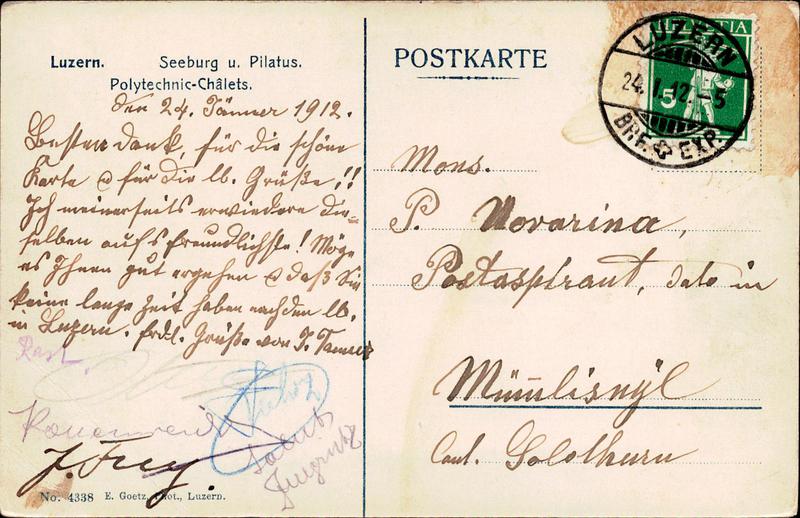 Luzern. Seeburg u. Pilatus.
Polytechnic-Châlets.
den 24. Jänner 1912.
Besten Dank, für die schöne
Karte & für die lb. Grüße!!
Ich meinerseits erwiedere die=
selben aufs freundlichste! Möge
es Ihnen gut ergehen & daß Sie
keine lange Zeit haben nach den lb.
in Luzern. frdl. Grüße von J. Tanner
J. Frey
No. 4338 E. Goetz, Phot., Luzern.
POSTKARTE
HELVETIA
5
LUZERN
24.I.12.-5
BRF. EXP.
Mons.
P. Novarina,
Postaspirant, dato in
Mümliswyl
Cant. Solothurn